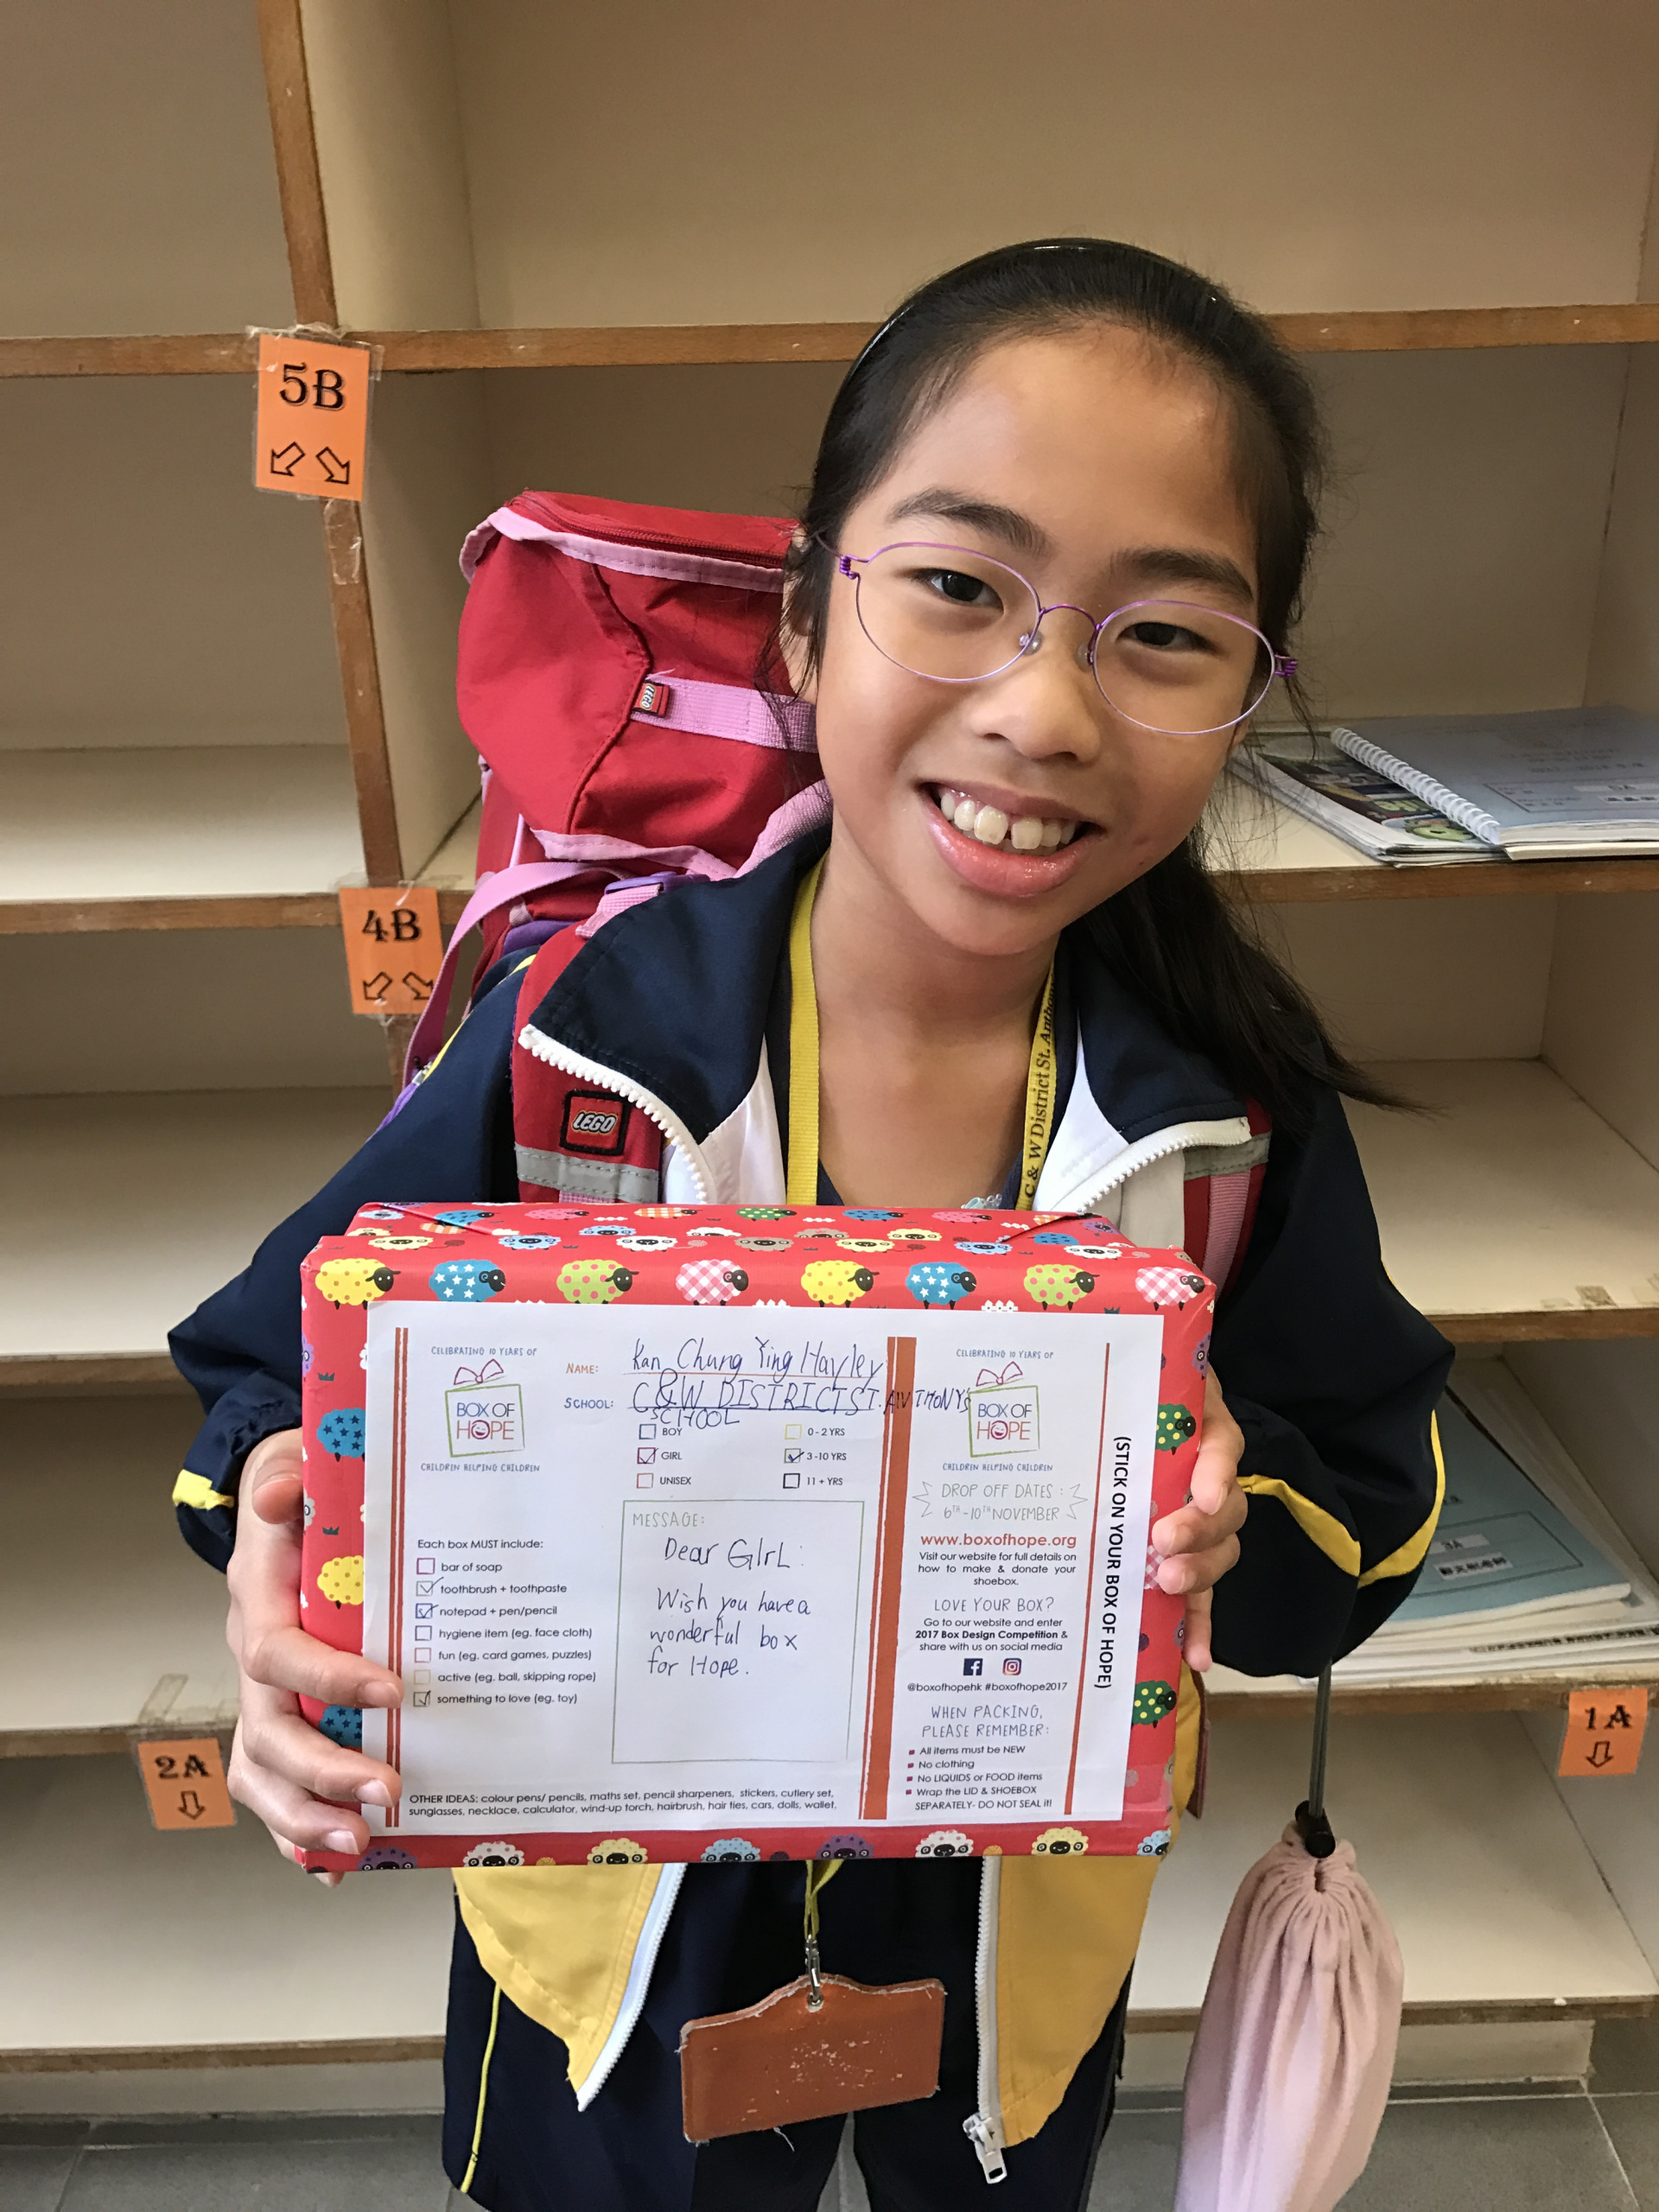 5B
4B
LEGO
LEGO
C & W District St. Antho
CELEBRATING 10 YEARS OF
BOX OF
HOPE
CHILDREN HELPING CHILDREN
NAME: Kan Chung Ying Hayley
SCHOOL: C&W DISTRICT ST. ANTHONY'S
SCHOOL
BOY
GIRL
UNISEX
0 - 2 YRS
3 -10 YRS
11 + YRS
Each box MUST include:
bar of soap
toothbrush + toothpaste
notepad + pen/pencil
hygiene item (eg. face cloth)
fun (eg. card games, puzzles)
active (eg. ball, skipping rope)
something to love (eg. toy)
MESSAGE:
Dear GIrL:
Wish you have a
wonderful box
for Hope.
OTHER IDEAS: colour pens/ pencils, maths set, pencil sharpeners, stickers, cutlery set,
sunglasses, necklace, calculator, wind-up torch, hairbrush, hair ties, cars, dolls, wallet.
CELEBRATING 10 YEARS OF
BOX OF
HOPE
CHILDREN HELPING CHILDREN
DROP OFF DATES :
6TH -10TH NOVEMBER
www.boxofhope.org
Visit our website for full details on
how to make & donate your
shoebox.
LOVE YOUR BOX?
Go to our website and enter
2017 Box Design Competition &
share with us on social media
@boxofhopehk #boxofhope2017
WHEN PACKING,
PLEASE REMEMBER:
All items must be NEW
No clothing
No LIQUIDS or FOOD items
Wrap the LID & SHOEBOX
SEPARATELY- DO NOT SEAL it!
(STICK ON YOUR BOX OF HOPE)
3A
2A
1A